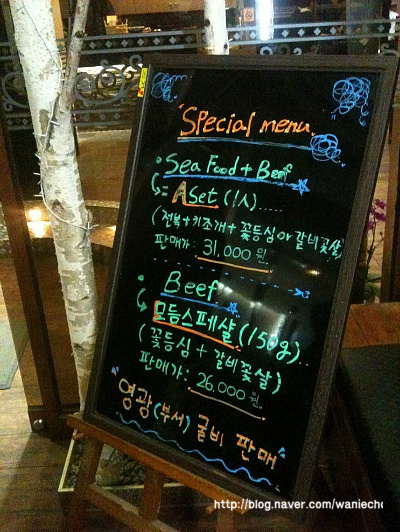 Special menu.
Sea Food + Beef
A set (1人).....
(전복+키조개+꽃등심or갈비꽃살)
판매가: 31,000원.
Beef
모듬스페셜(150g)..
(꽃등심+갈비꽃살)
판매가: 26,000원.
영광(부서)굴비 판매
http://blog.naver.com/waniecho